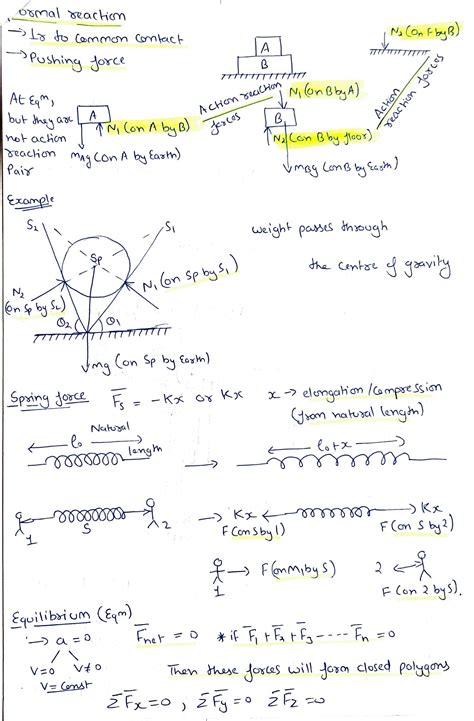 ormal reaction
→ ⊥r to common contact
→ Pushing force
A
B
N2 (on F by B)
At Eqm,
but they are
not action
reaction
pair
A
N1 (on A by B)
mAg (on A by Earth)
Action reaction
forces
N1 (on B by A)
B
N2 (on B by floor)
mBg (on B by Earth)
Action
reaction forces
Example
S2
S1
Sp
N2
(on Sp by S2)
N1 (on Sp by S1)
θ2
θ1
mg (on Sp by Earth)
weight passes through
the centre of gravity
Spring force F̅s = -Kx or Kx x → elongation/compression
(from natural length)
Natural
l0
length
→
l0+x
1
S
2
→ Kx
Kx
F(on S by 1)
F(on S by 2)
1
→ F(on M1 by S)
2
F (on 2 by S).
Equilibrium (Eqm)
→ a = 0
F̅net = 0 * if F̅1 + F̅2 + F̅3 ----- F̅n = 0
V=0 V≠0
V = Const
Then these forces will form closed polygons
Σ̅Fx=0 , Σ̅Fy=0 Σ̅Fz=0